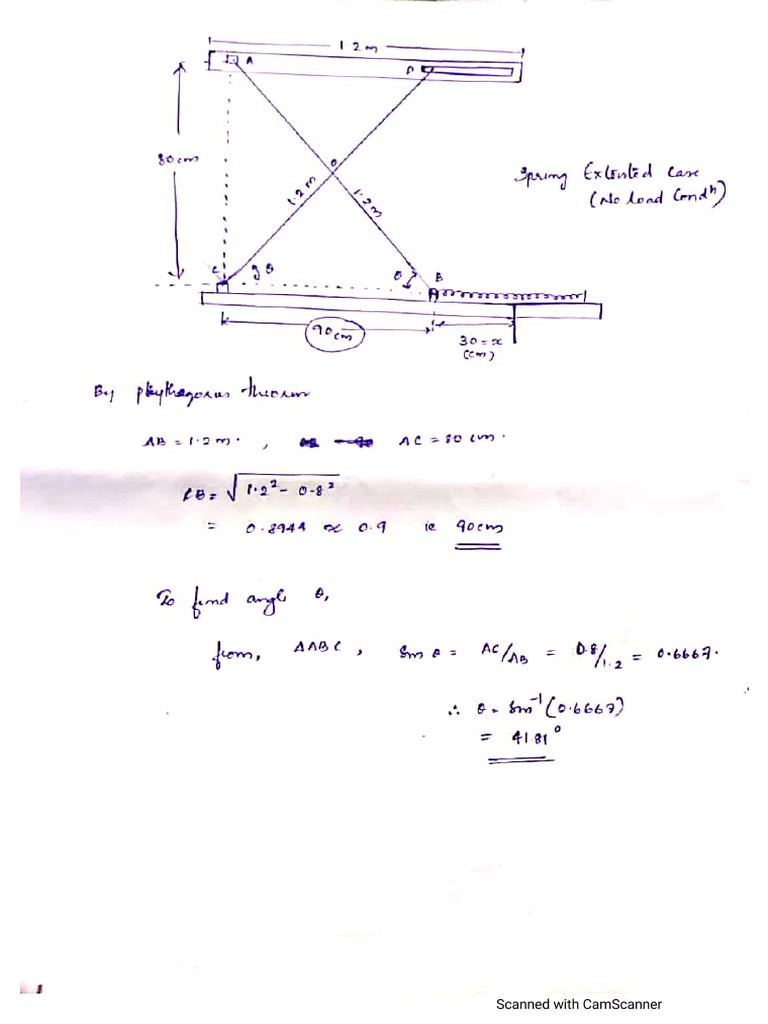 1.2m
A
D
80cm
O
1.2m
1.2m
Spring Extented Case
(No load Condⁿ)
C
θ
θ
B
90cm
30 = x
(cm)
By phythagorus theorm
AB = 1.2 m. , AC = 80 cm.
CB = √1.2² - 0.8²
= 0.8944 ∝ 0.9 ie 90cm
To find angle θ,
from, ΔABC, Sin θ = AC/AB = 0.8/1.2 = 0.6667.
∴ θ = Sin⁻¹(0.6667)
= 41.81°
Scanned with CamScanner